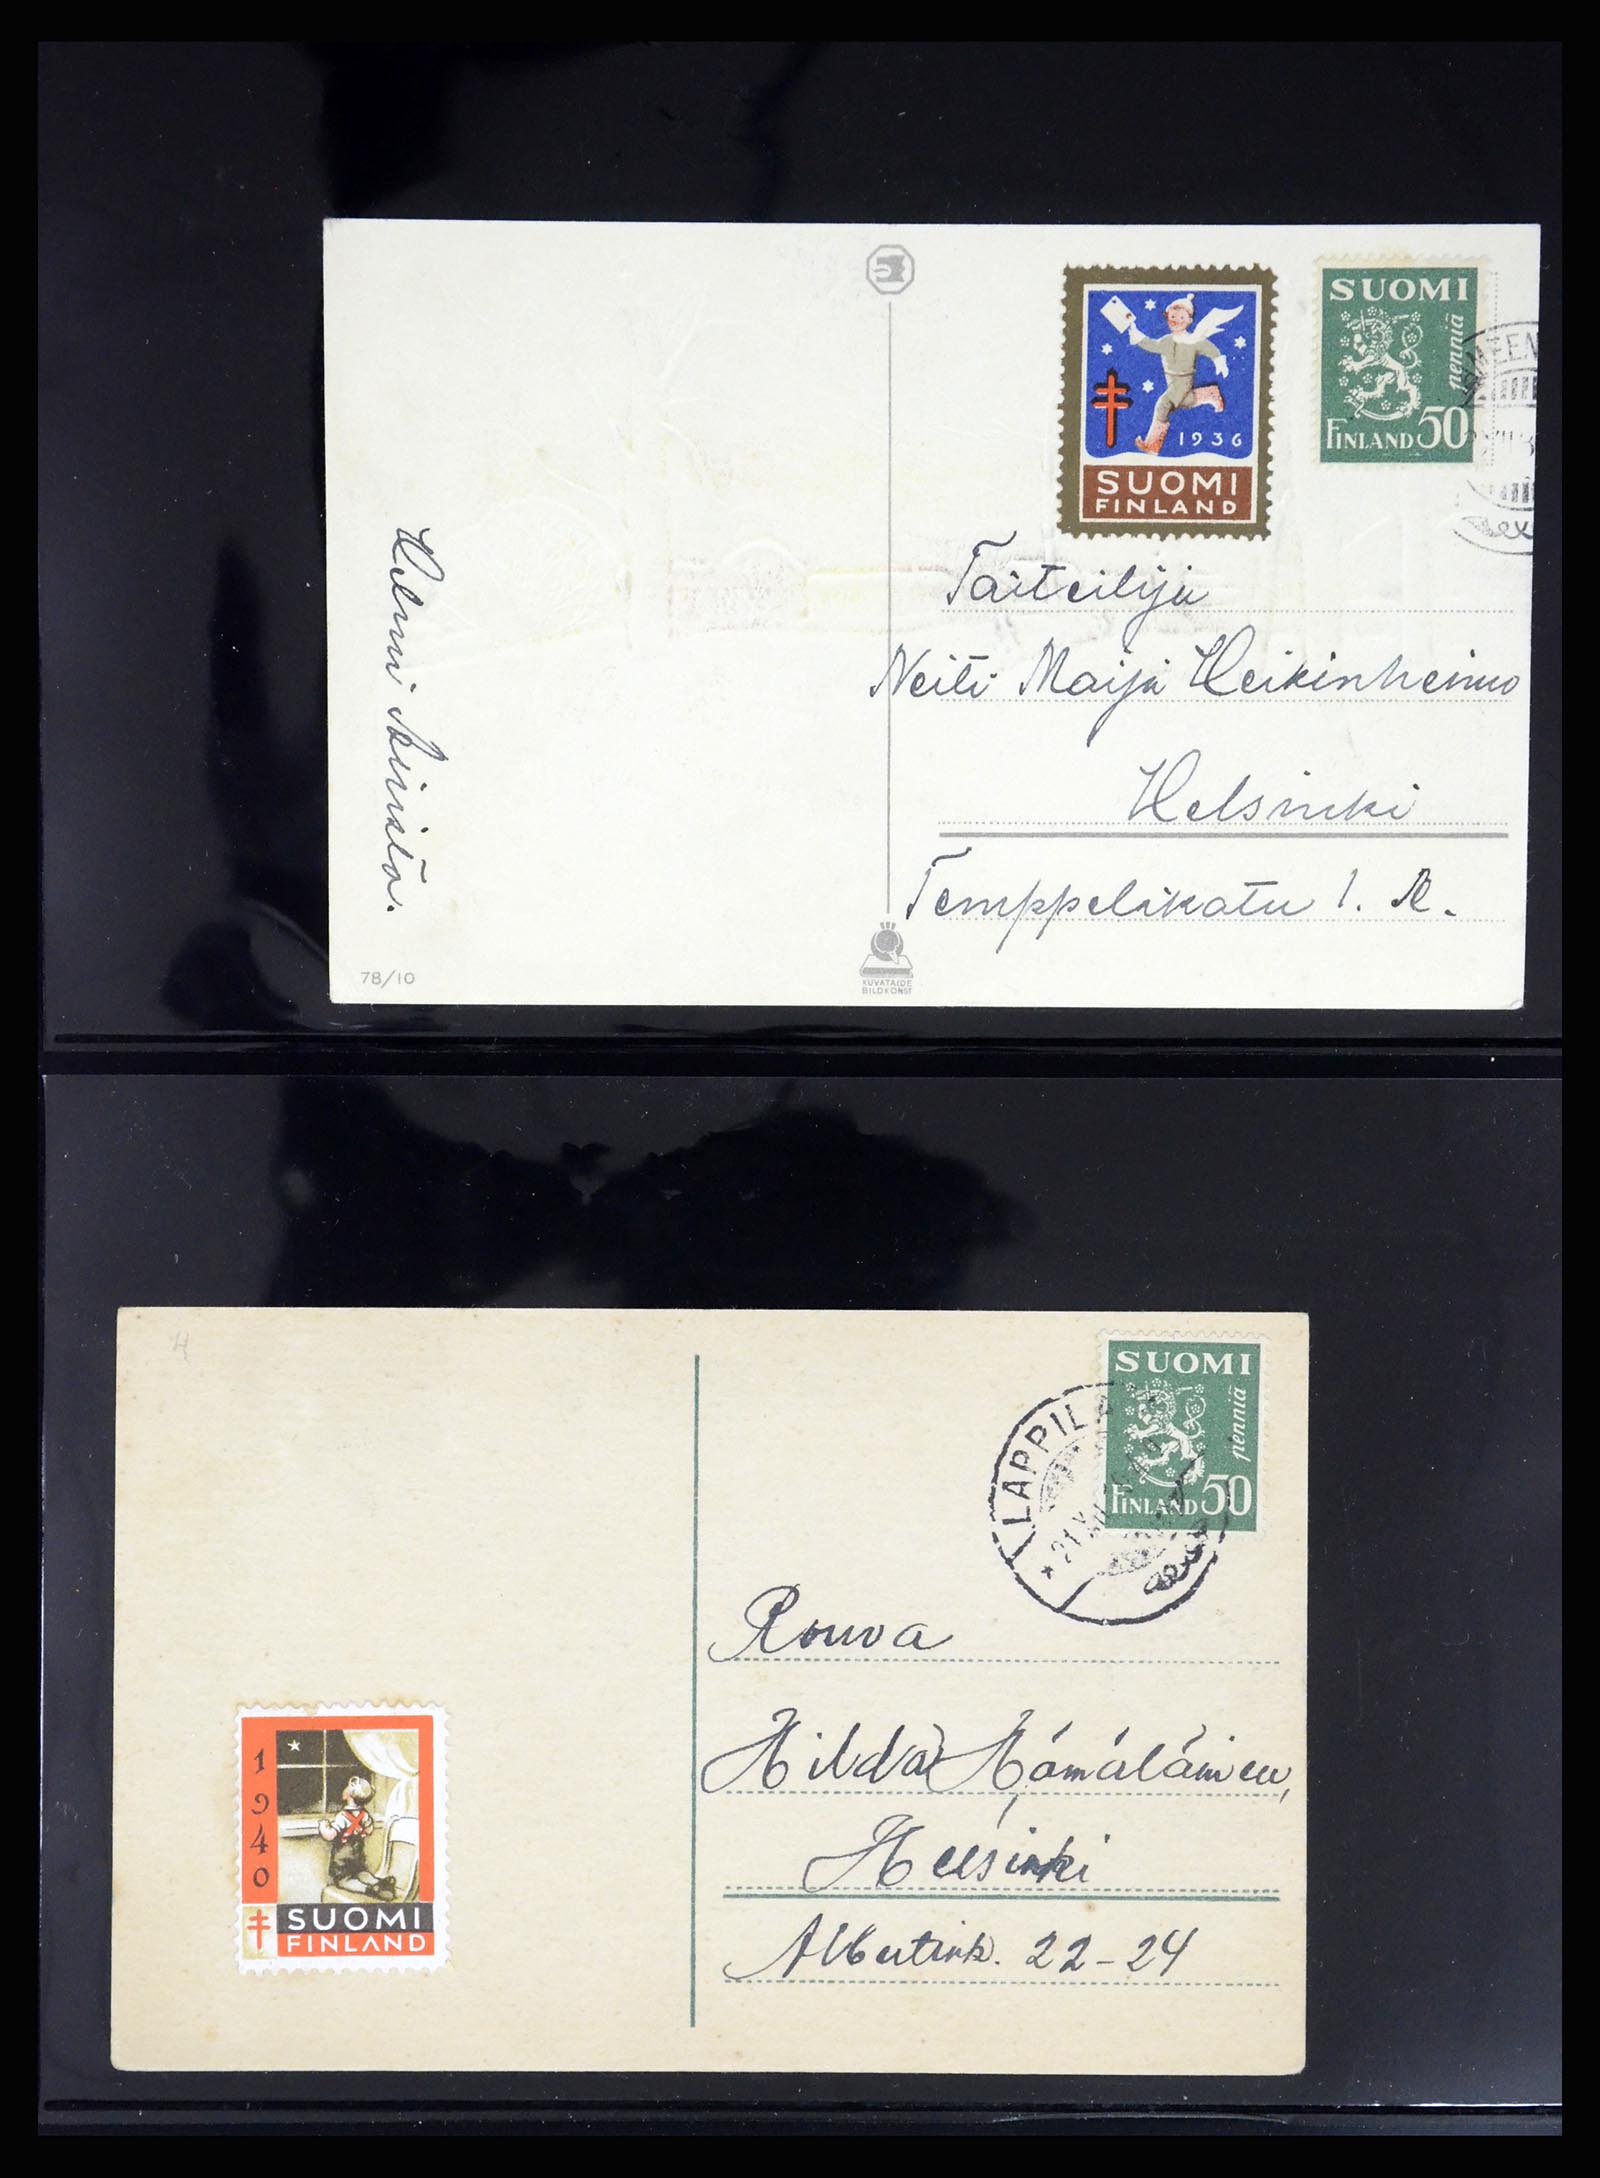 1936
SUOMI
FINLAND
SUOMI
penniä
FINLAND 50
Taiteilija
Neiti Maija Heikinheimo
Helsinki
Temppelikatu 1. A.
Helmi
78/10
KUVATAIDE
BILDKONST
SUOMI
penniä
FINLAND 50
LAPPILA
21.XII
Rouva
Hilda Hämäläinen,
Helsinki
Albertink. 22-24
1940
SUOMI
FINLAND